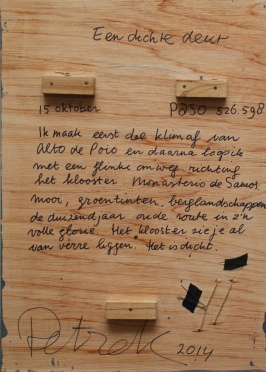 Een dichte deur
15 oktober Paso 526.598
Ik maak eerst de klim af van
Alto de Poio en daarna loop ik
met een flinke omweg richting
het klooster Monasterio de Samos.
Mooi, groentinten, berglandschappen
de duizend jaar oude route in z'n
volle glorie. Het klooster zie je al
van verre liggen. Het is dicht.
2014